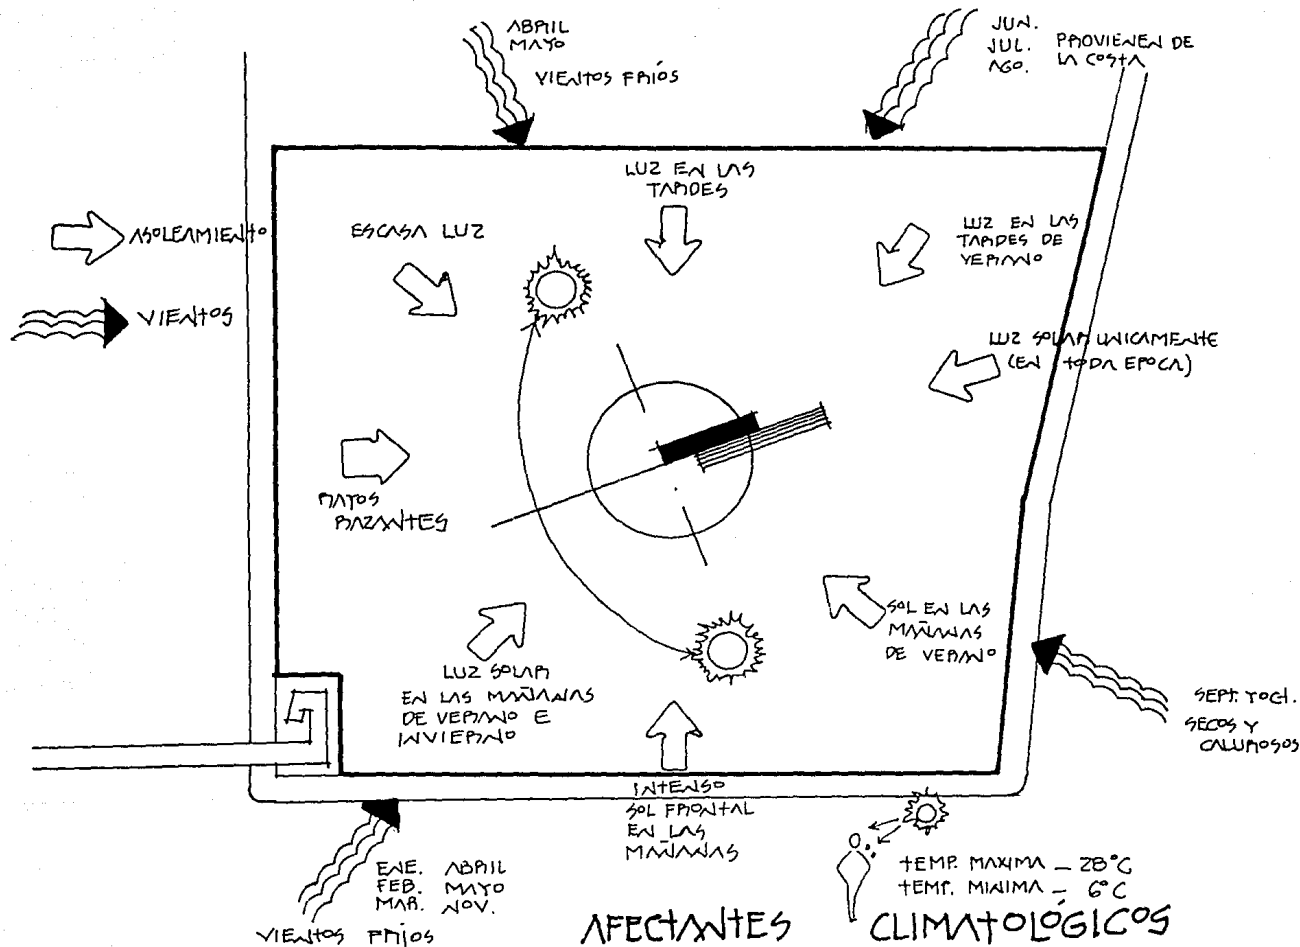 ABRIL
MAYO
VIENTOS FRÍOS
JUN.
JUL. PROVIENEN DE
AGO. LA COSTA
LUZ EN LAS
TARDES
ASOLEAMIENTO
ESCASA LUZ
LUZ EN LAS
TARDES DE
VERANO
VIENTOS
LUZ SOLAR UNICAMENTE
(EN TODA EPOCA)
RAYOS
RAZANTES
SOL EN LAS
MAÑANAS
DE VERANO
LUZ SOLAR
EN LAS MAÑANAS
DE VERANO E
INVIERNO
SEPT. Y OCT.
SECOS Y
CALUROSOS
INTENSO
SOL FRONTAL
EN LAS
MAÑANAS
ENE. ABRIL
FEB. MAYO
MAR. NOV.
VIENTOS FRÍOS
TEMP. MAXIMA – 28°C
TEMP. MINIMA – 6°C
AFECTANTES CLIMATOLÓGICOS